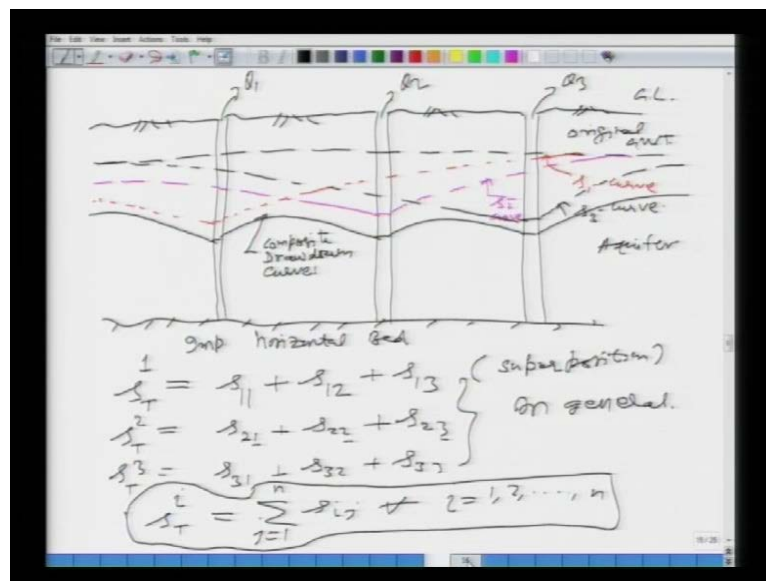 File Edit View Insert Actions Tools Help
Q1 Q2 Q3 G.L.
original GWT
S1 curve
S2 curve
S3 curve
Composite Drawdown Curves
Aquifer
Imp horizontal Bed
S_T^1 = S_11 + S_12 + S_13
S_T^2 = S_21 + S_22 + S_23
S_T^3 = S_31 + S_32 + S_33
(superposition)
In general.
S_T^i = \sum_{j=1}^{n} S_ij ∀ i = 1, 2, ..., n
15/25